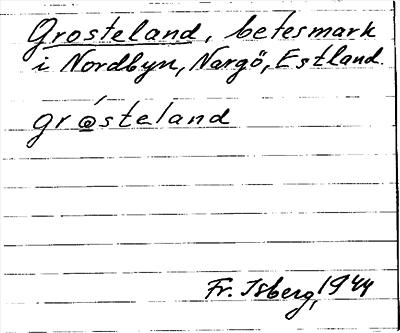 Grosteland, betesmark
i Nordbyn, Nargö, Estland.
grósteland
Fr. Isberg, 1944